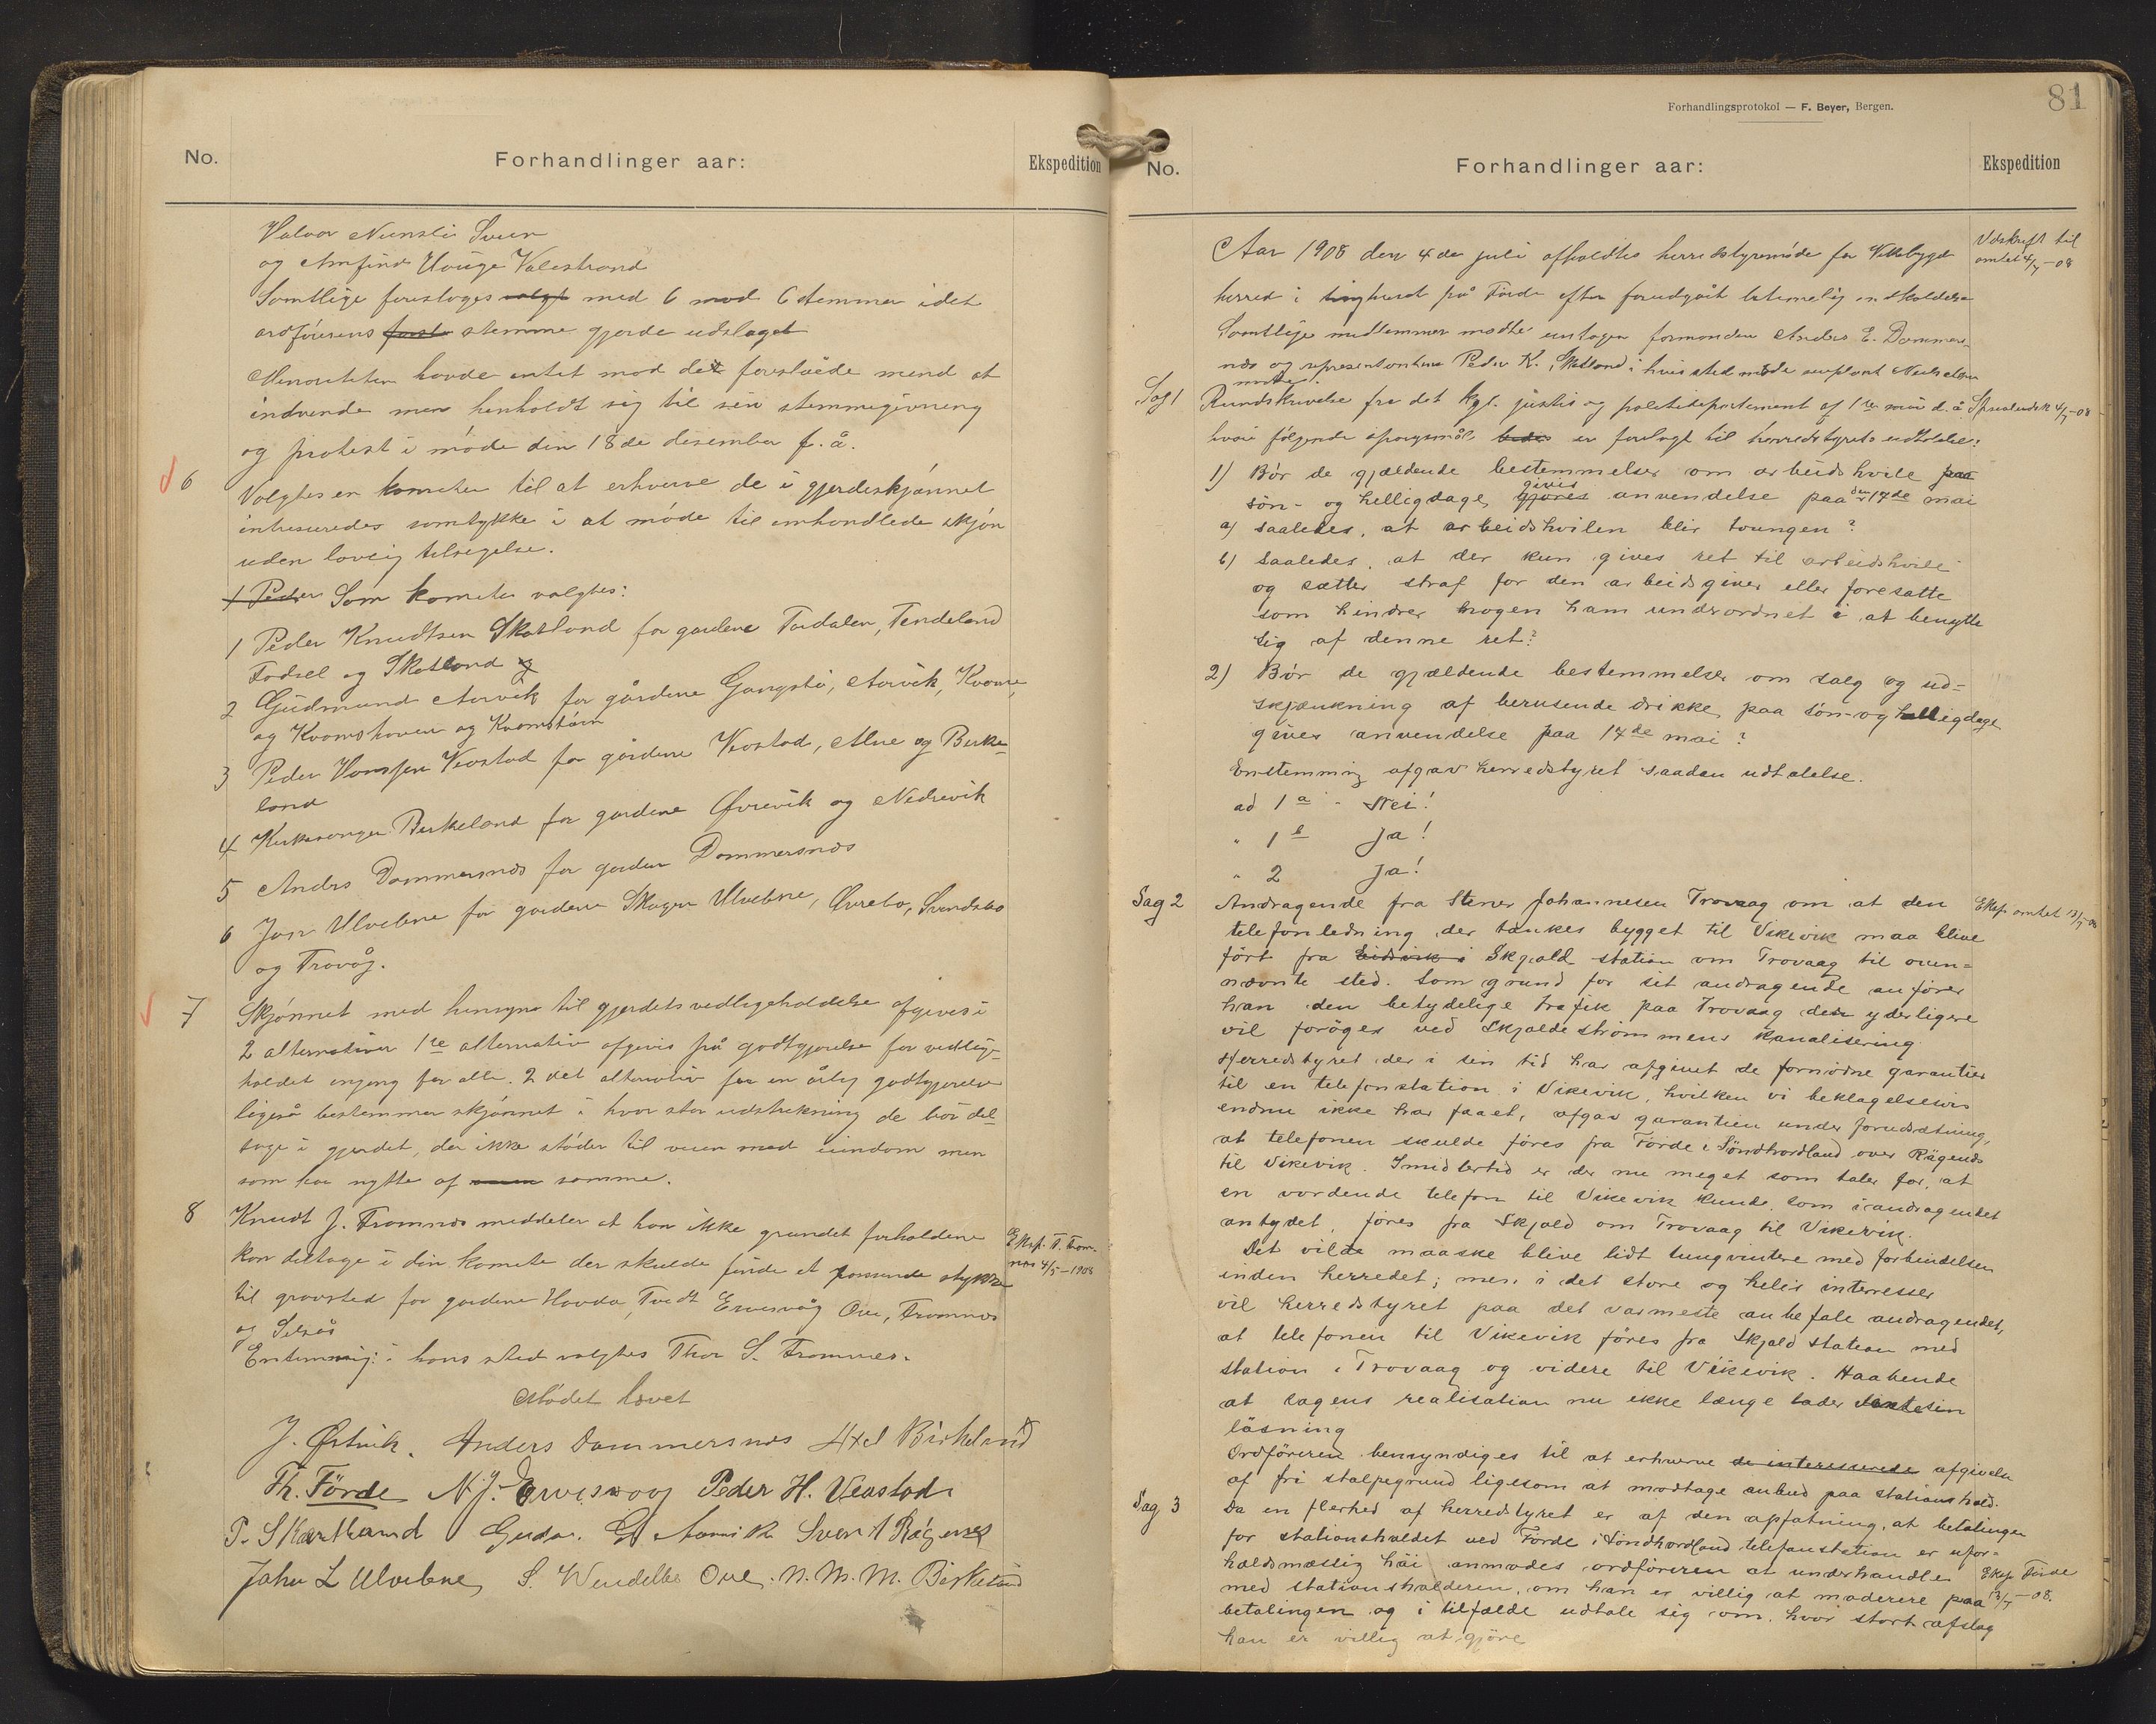 No.
Forhandlinger aar:
Ekspedition
Halvor Nernsli Sveen
og Arnfind Houge Valestrand
Samtlige foresloges valgt med 6 mod 6 stemmer idet
ordførerens første stemme gjorde udslaget
Minoriteten havde intet mod de foreslåede mend at
indvende men henholdt sig til sin stemmegivning
og protest i møde den 18de desember f. å.
6 Valgtes en komite til at erhverve de i gjerdeskjønnet
interesseredes samtykke i at møde til omhandlede skjøn
uden lovlig tilsigelse.
1 Peder Som komite valgtes:
1 Peder Knudtsen Skartland for gardene Tordalen, Tendeland
Fodsel og Skatland
2 Gudmund Aarvik for gårdene Gangstø, Aarvik, Kvame,
og Kvamshoven og Kvamstøen
3 Peder Hansen Veastad for gårdene Veastad, Alne og Birke-
land
4 Kirkesanger Birkeland for gardene Øvrevik og Nedrevik
5 Anders Dommersnes for garden Dommersnes
6 Jon Ulvebne for gardene Skogen Ulvebne, Øvrebø, Svendsbø
og Trovåg.
7 Skjønnet med hensyn til gjerdets vedligeholdelse afgives i
2 alternativer 1te alternativ afgives på godtgjørelse for vedlige-
holdet engang for alle. 2det alternativ for en årlig godtgjørelse
ligeså bestemmer skjønnet i hvor stor udstrekning de bør del-
tage i gjerdet, der ikke støder til veien med eiendom men
som har nytte af samme.
8 Knudt J. Framnes meddeler at han ikke grundet forholdene
kan deltage i den komite der skulde finde et passende stykke
til gravsted for gardene Hovda, Tvedt Ervesvåg Øen, Framnes
og Selsås
Enstemmig: i hans sted valgtes Thor S. Framnes.
Eksp. T. Fram-
nes 4/5-1908
Mødet hævet
J. Østvik. Anders Dommersnes Axel Birkeland
Th. Förde N. J. Ervesvaag Peder H. Veastad.
P. Skartland Gudm. G. Aarvik Sven A Rögenes
John L Ulvebne, S. Wendelbo Öen. N. M. M. Birkeland
Forhandlingsprotokol — F. Beyer, Bergen.
81
No.
Forhandlinger aar:
Ekspedition
Aar 1908 den 4de juli afholdtes herredstyremøde for Vikebygd
herred i tinghuset på Førde efter forudgået betimelig indkaldelse
Samtlige medlemmer mødte undtagen formanden Anders E. Dommers-
nes og representanten Peder K. Skatland i hvis sted møde suplant
møtte.
Udskrift til
amtet 4/7-08
Sag 1 Rundskrivelse fra det kgl. justis og politidepartement af 1te mai d. å.
hvori følgende spørgsmål bedes er forelagt til herredstyrets udtalelse:
1) Bör de gjældende bestemmelser om arbeidshvile paa
sön- og helligdage gjöres givis anvendelse paa den 17de mai
a) saaledes, at arbeidshvilen blir tvungen?
b) saaledes, at der kun gives ret til arbeidshvile
og sætter straf for den arbeidsgiver eller foresatte
som hindrer nogen ham underordnet i at benytte
sig af denne ret?
2) Bör de gjældende bestemmelser om salg og ud-
skjænkning af berusende drikke paa sön- og helligdage
gives anvendelse paa 17de mai?
Enstemmig afgav herredstyret saadan udtalelse.
ad 1 a - Nei!
" 1 b Ja!
" 2 Ja!
Sag 2 Andragende fra Stener Johannesen Trovaag om at den
telefonledning der tænkes bygget til Vikevik maa blive
fört fra Eidsvik i Skjold station om Trovaag til oven-
nævnte sted. Som grund for sit andragende anförer
han den betydelige trafik paa Trovaag der yderligere
vil foröges ved Skjoldeströmmens kanalisering
Eksp amtet 13/7-08
Herredstyret der i sin tid har afgivet de fornödne garantier
til en telefonstation i Vikevik, hvilken vi beklageligvis
endnu ikke har faaet, afgav garantien under forudsætning,
at telefonen skulde föres fra Förde i Söndhordland over Rägends
til Vikevik. Imidlertid er der nu meget som taler for, at
en vordende telefon til Vikevik kunde, som i andragendet
antydet, föres fra Skjold om Trovaag til Vikevik.
Det vilde maaske blive lidt tungvintere med forbindelsen
inden herredet; men i det store og heles interesser
vil herredstyret paa det varmeste anbefale andragendet,
at telefonen til Vikevik föres fra Skjold station med
station i Trovaag og videre til Vikevik. Haabende
at sagens realisation nu ikke længe lader vente sin
läsning
Ordföreren bemyndiges til at erhverve de interesserede afgivelse
af fri stolpegrund ligesom at modtage anbud paa stationshold.
Sag 3 Da en flerhed af herredstyret er af den opfatning, at betalingen
for stationsholdet ved Förde i Söndhordland telefonstation er ufor-
holdsmæssig häi anmodes ordföreren at underhandle
med stationsholderen, om han er villig at moderere paa
betalingen og i tilfælde udtale sig om, hvor stort afslag
han er villig at gjöre
Eksp Förde
13/7-08.